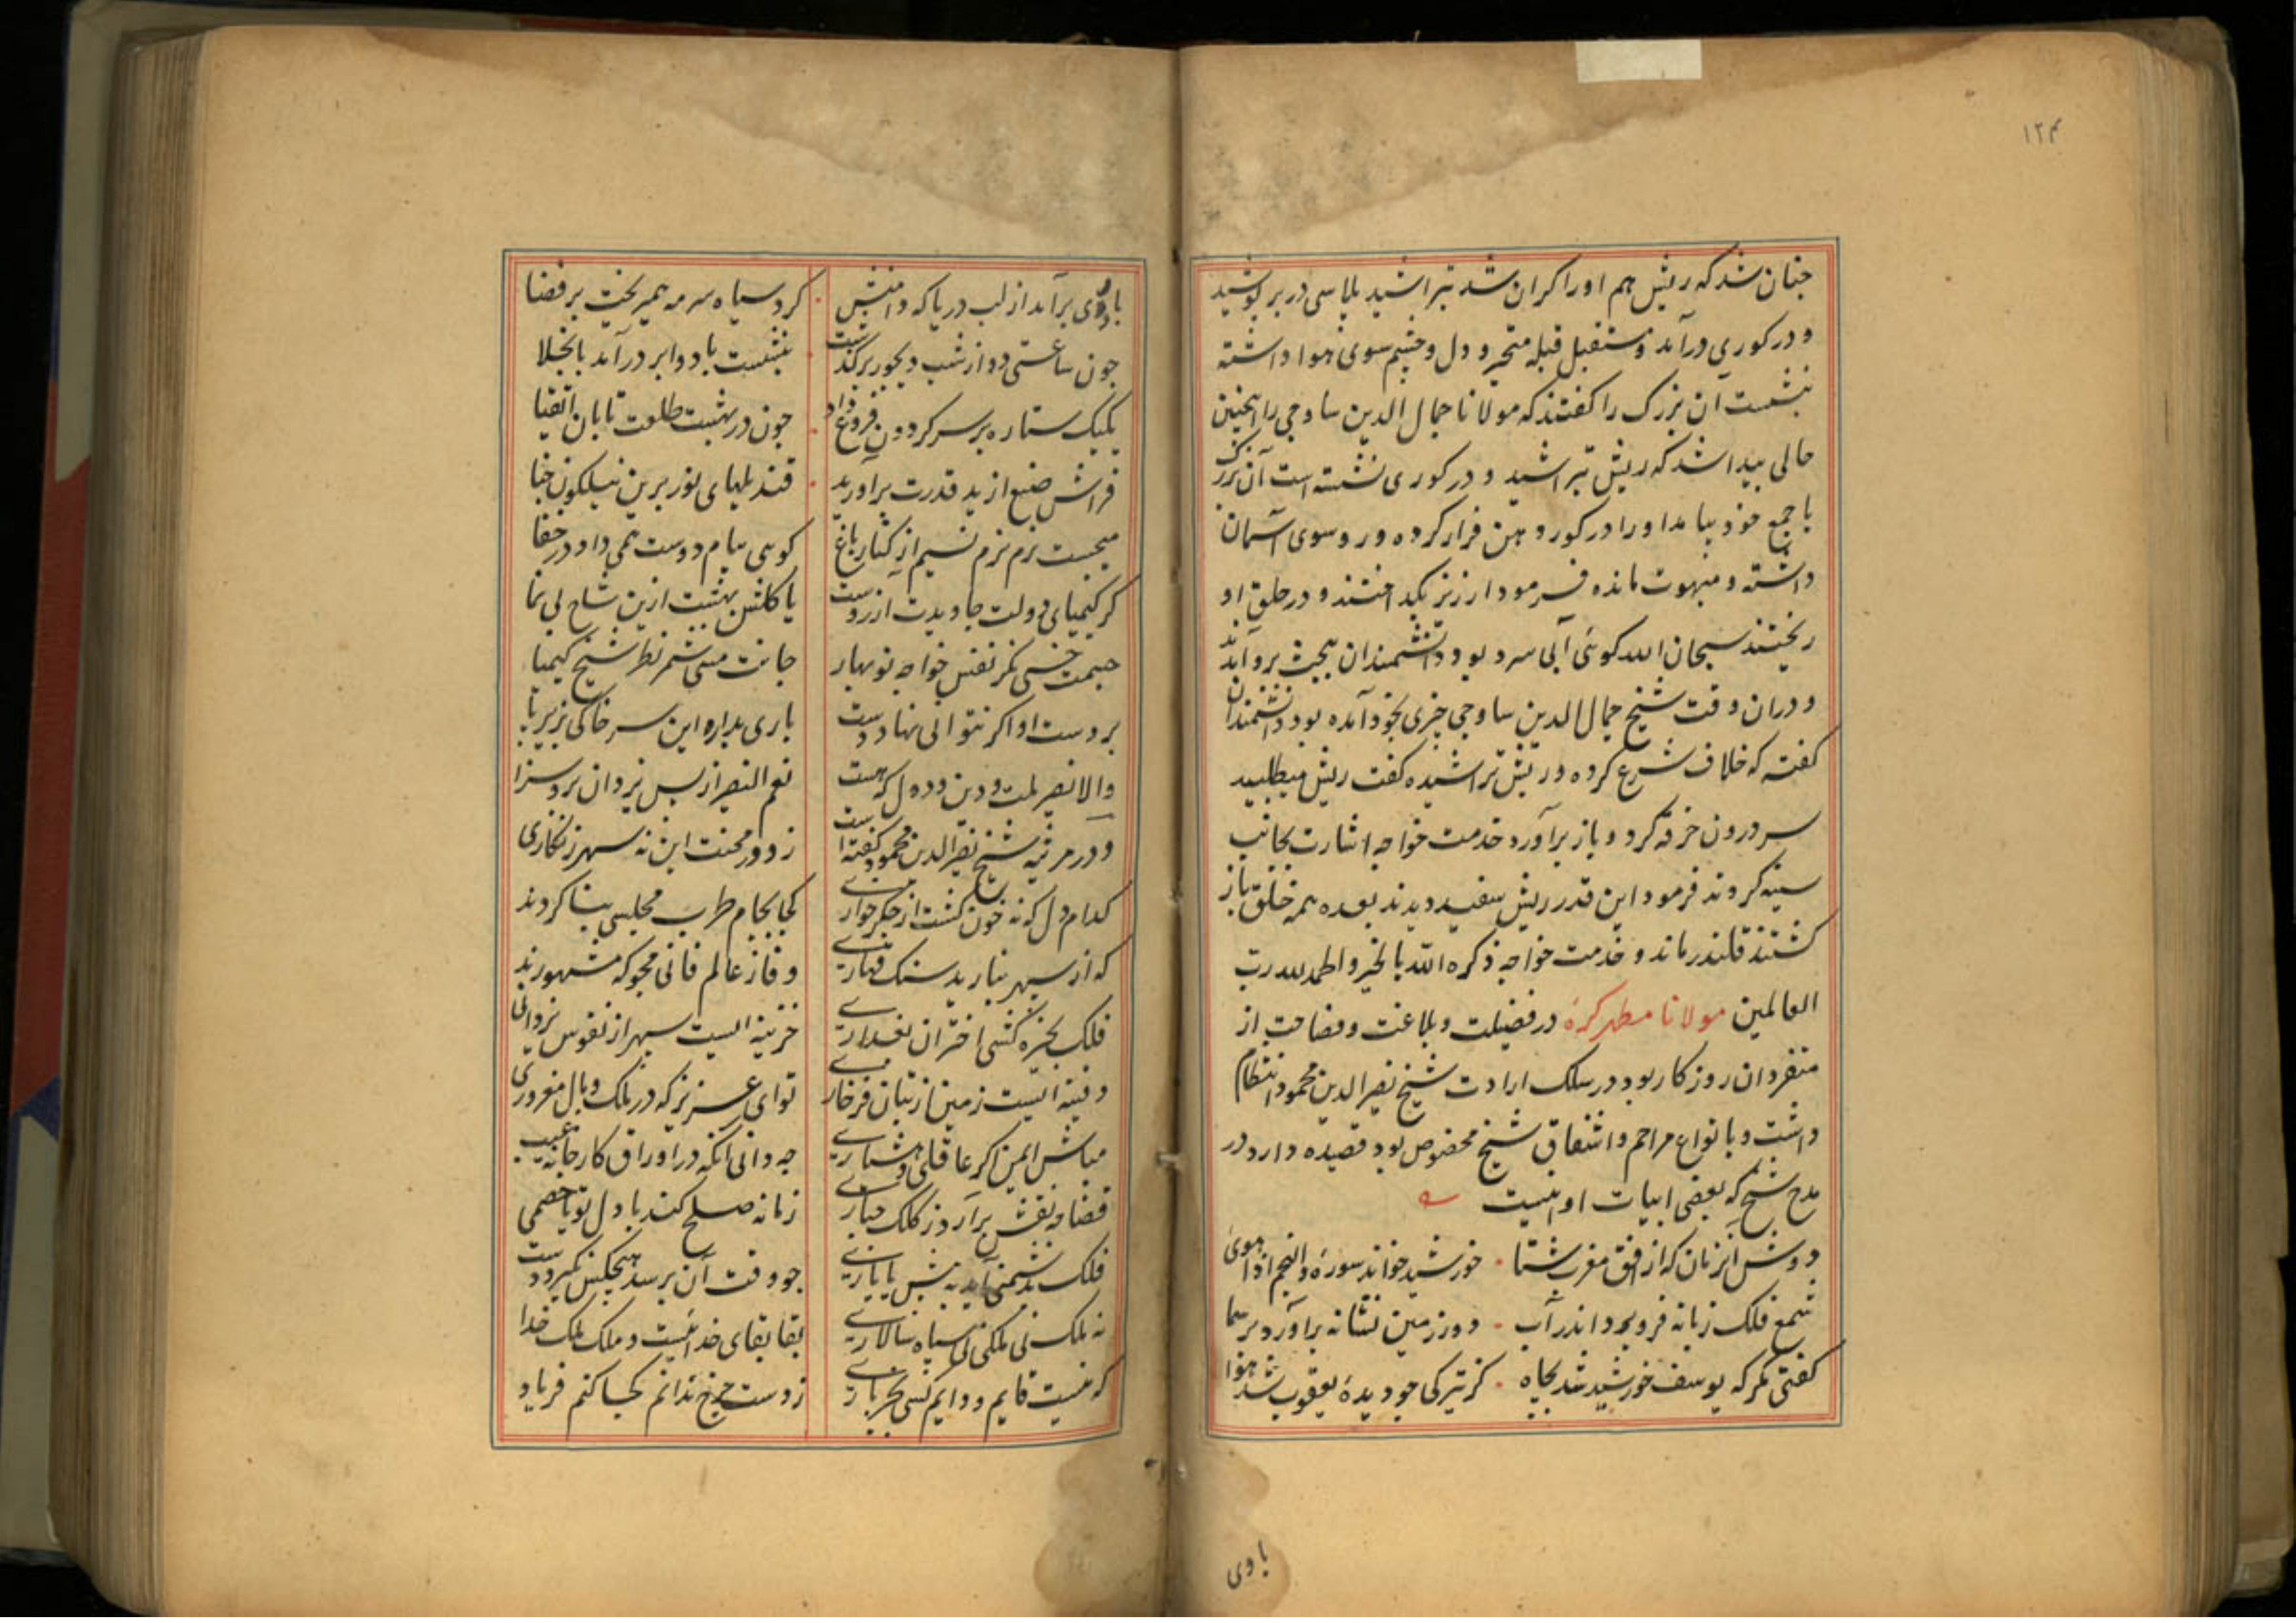 ۱۲۴
چنان شد که ریش هم او را کران شد بتراشید پلاسی در بر پوشید
و در کوری درآمد و مستقبل قبله متحیر و دل و چشم سوی هوا داشته
بنشست آن بزرک را کفتند که مولانا جمال الدین ساوجی را اینچنین
حالی پیدا شد که ریش بتراشید و در کوری نشسته است آن بزرک
با جمع خود بیامد او را در کور دهن فراز کرده و رو سوی آسمان
داشته و مبهوت مانده فرمود ارزیز بکداختند و در حلق او
ریختند سبحان الله کوئی آبی سرد بود دانشمندان ببحث برو آمدند
و دران وقت شیخ جمال الدین ساوجی چیزی بخود آمده بود دانشمندان
کفته که خلاف شرع کرده و ریش تراشیده کفت ریش میطلبید
سر درون خرقه کرد و باز برآورد خدمت خواجه اشارت بجانب
سینه کردند فرمود این قدر ریش سفید دیدند بعده همه خلق باز
کشتند قلندر ماند و خدمت خواجه ذکره الله بالخیر و الحمد لله رب
العالمین مولانا مطهر کره در فضیلت و بلاغت و فصاحت از
متفردان روزکار بود در سلک ارادت شیخ نصیر الدین محمود انتظام
داشت و بانواع مراحم و اشفاق شیخ مخصوص بود قصیده دارد در
مدح شیخ که بعضی ابیات او اینست
دوش آنزمان که از افق مغرب شتا خورشید خواند سوره والنجم اذا هوی
شمع فلک زبانه فرو برد اندر آب دود زمین نشانه برآورد بر سما
کفتی مکر که یوسف خورشید شد بچاه کز تیرکی چو دیده یعقوب شد هوا
بادی
بادی برآمد از لب دریا که دامنش کرد سیاه سرمه همیریخت بر فضا
چون ساعتی دو از شب دیجور برکذشت بنشست باد و ابر درآمد بانجلا
یکیک ستاره بر سر کردون فروغ داد چون در بهشت طلعت تابان اتقیا
فراش صنع از ید قدرت برآورید قندیلهای نور برین نیلکون خبا
میجست نرم نرم نسیم از کنار باغ کوئی پیام دوست همی داد در خفا
کر کیمیای دولت جاویدت آرزوست یا کلشن بهشت ازین شاخ لی نما
جسمت خسی نکر نفس خواجه نوبهار جانت مسی شمر نظر شیخ کیمیا
بر دست او اکر نتوانی نهاد دست باری بدار این سر خاکی بزیر پا
والا نصیر ملت و دین و دول که هست نعم النصیر از پس یزدان برو سزا
و در مرثیه شیخ نصیر الدین محمود کفته است ز دور محنت این نه سپهر زنکاری
کدام دل که نه خون کشت از جکر خواری کجا بجام طرب مجلسی بنا کردند
که از سپهر نبارید سنک قهاری وفا ز عالم فانی مجو که مشهورند
فلک بخیره کشی اختران بغداری خزینه ایست سپهر از نفوس یزدانی
دفینه ایست زمین از بتان فرخاری تو ای عزیز که در ملک و بال مغروری
مباش ایمن اکر عاقلی و هشیاری چه دانی آنکه در اوراق کارخانه غیب
قضا چه نقش برآرد ز کلک جباری زمانه صلح کند با دل تو یا خصمی
فلک بدشمنی آید به پیش یا یاری چو وقت آن برسد هیچکس نکیرد دست
نه ملک نی ملکی نی سپاه سالاری بقا بقای خدائیست و ملک ملک خدا
که نیست قایم و دایم کسی بجز باری ز دست چرخ ندانم کجا کنم فریاد